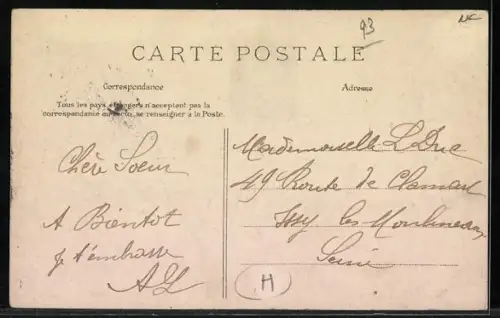 93
CARTE POSTALE
Correspondance
Adresse
Tous les pays étrangers n'acceptent pas la
correspondance au recto, se renseigner à la Poste.
Chère Soeur
A Bientot
je t'embrasse
Mademoiselle L Duc
49 Route de Clamart
Issy les Moulineaux
Seine
H